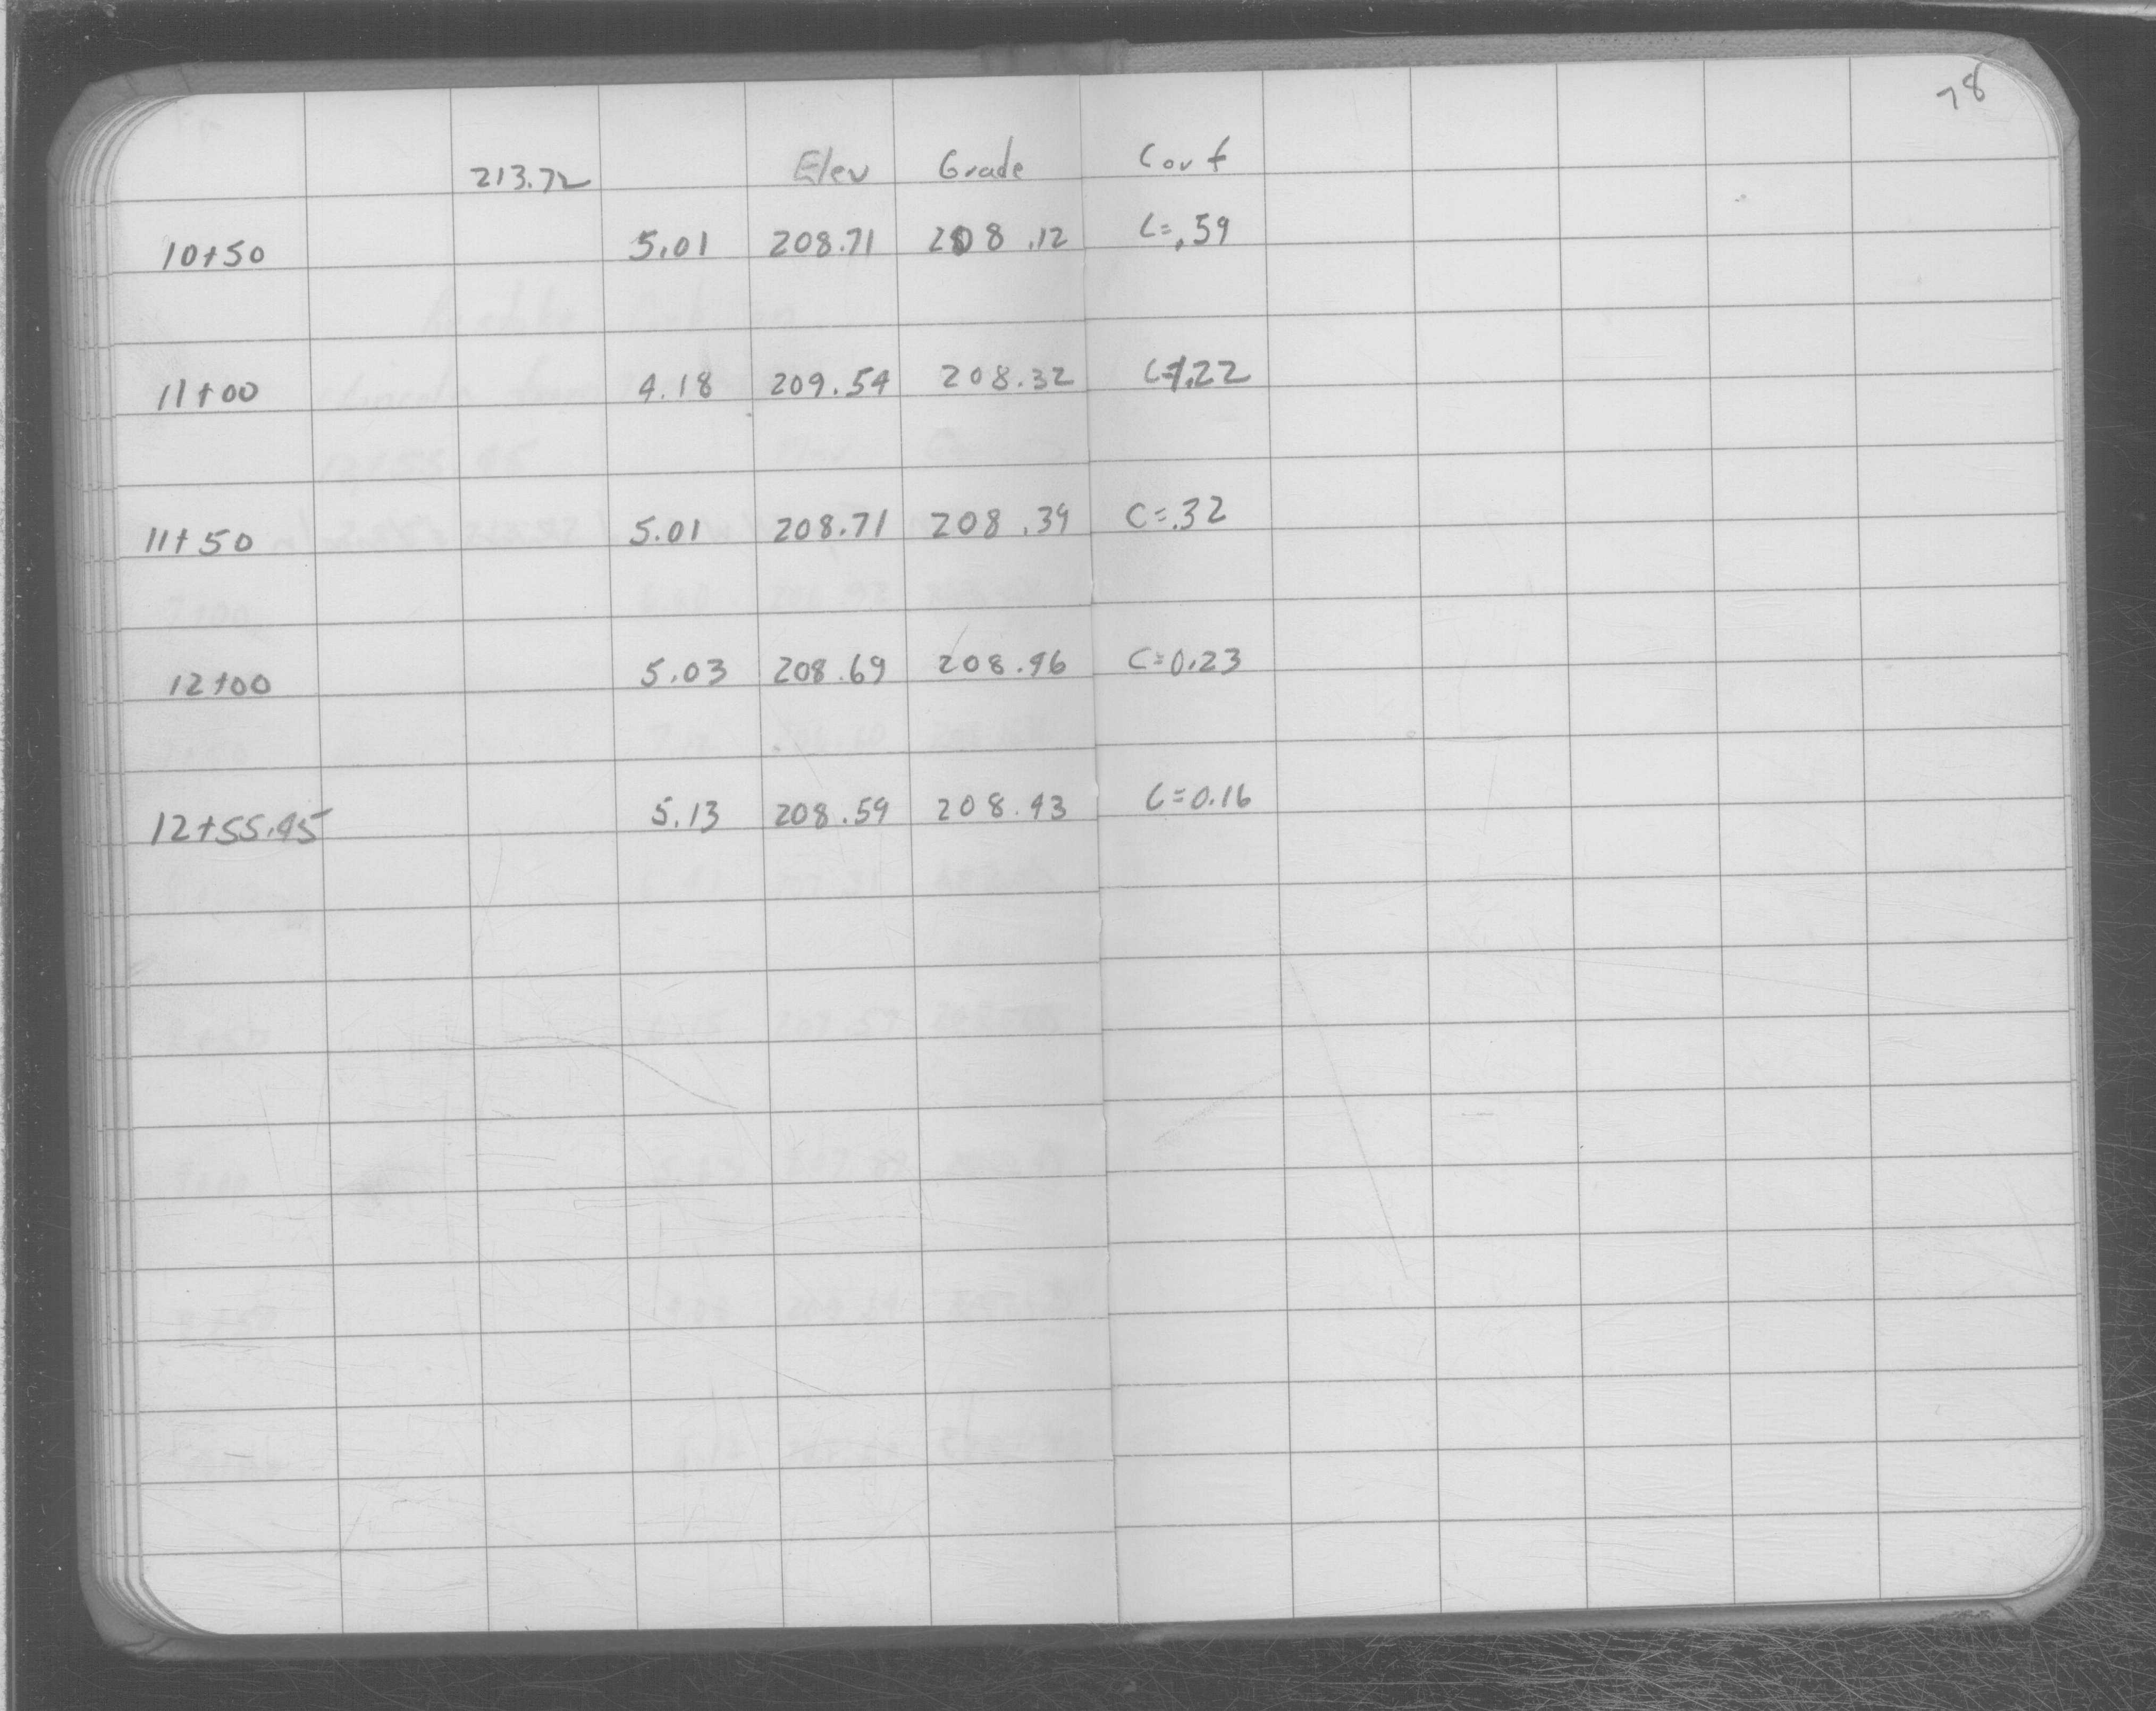 78
213.72 Elev Grade C or f
10+50 5.01 208.71 208.12 C=.59
11+00 4.18 209.54 208.32 C=1.22
11+50 5.01 208.71 208.39 C=.32
12+00 5.03 208.69 208.46 C=0.23
12+55.45 5.13 208.59 208.43 C=0.16